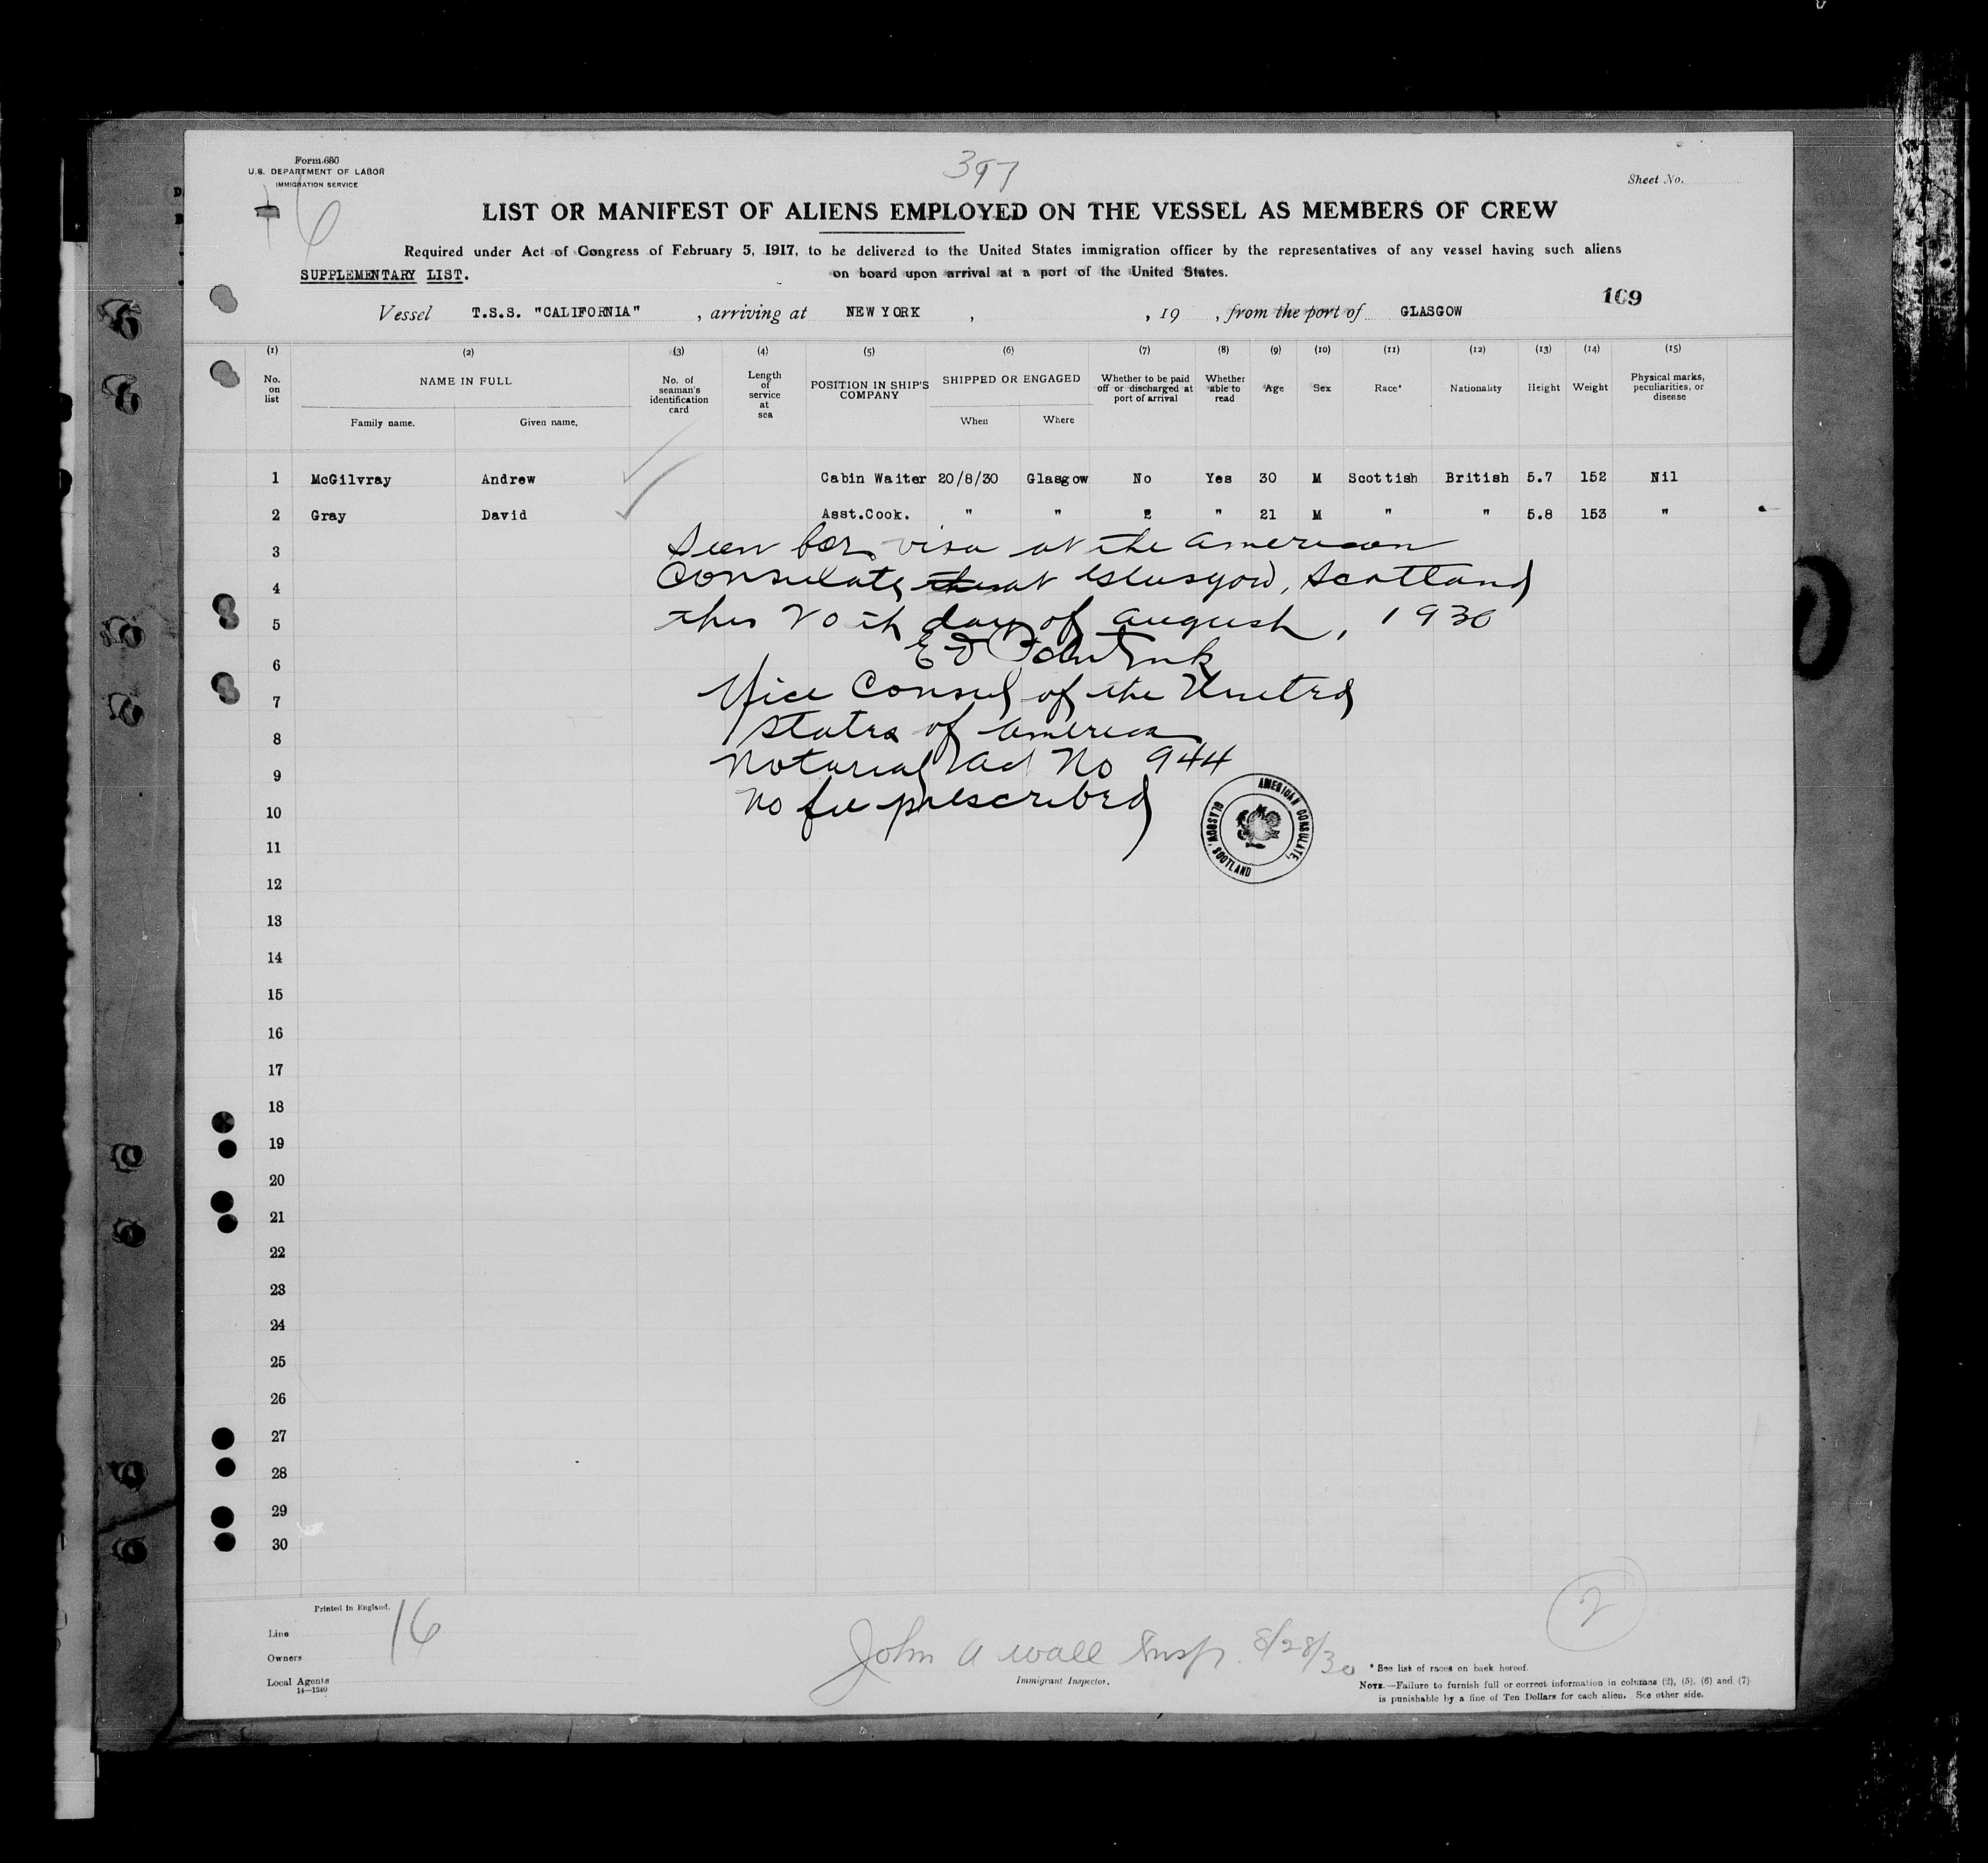 Form 680
U.S. DEPARTMENT OF LABOR
IMMIGRATION SERVICE
397
Sheet No.
16
LIST OR MANIFEST OF ALIENS EMPLOYED ON THE VESSEL AS MEMBERS OF CREW
Required under Act of Congress of February 5, 1917, to be delivered to the United States immigration officer by the representatives of any vessel having such aliens
SUPPLEMENTARY LIST. on board upon arrival at a port of the United States.
109
Vessel T.S.S. "CALIFORNIA" , arriving at NEW YORK , , 19 , from the port of GLASGOW
(1) (2) (3) (4) (5) (6) (7) (8) (9) (10) (11) (12) (13) (14) (15)
No. on list NAME IN FULL No. of seaman's identification card Length of service at sea POSITION IN SHIP'S COMPANY SHIPPED OR ENGAGED Whether to be paid off or discharged at port of arrival Whether able to read Age Sex Race* Nationality Height Weight Physical marks, peculiarities, or disease
Family name. Given name. When Where
1 McGilvray Andrew Cabin Waiter 20/8/30 Glasgow No Yes 30 M Scottish British 5.7 152 Nil
2 Gray David Asst.Cook. " " " " 21 M " " 5.8 153 "
3 Seen for visa at the American
4 Consulate at Glasgow, Scotland
5 this 20th day of August, 1930
6
7 Vice Consul of the United
8 States of America
9 Notarial Act No 944
10 No fee prescribed
AMERICAN CONSULATE,
GLASGOW, SCOTLAND
11
12
13
14
15
16
17
18
19
20
21
22
23
24
25
26
27
28
29
30
Printed in England.
16
2
Line
Owners
Local Agents
14—1240
John A Wall Insp. 8/28/30
Immigrant Inspector.
* See list of races on back hereof.
NOTE.—Failure to furnish full or correct information in columns (2), (5), (6) and (7)
is punishable by a fine of Ten Dollars for each alien. See other side.